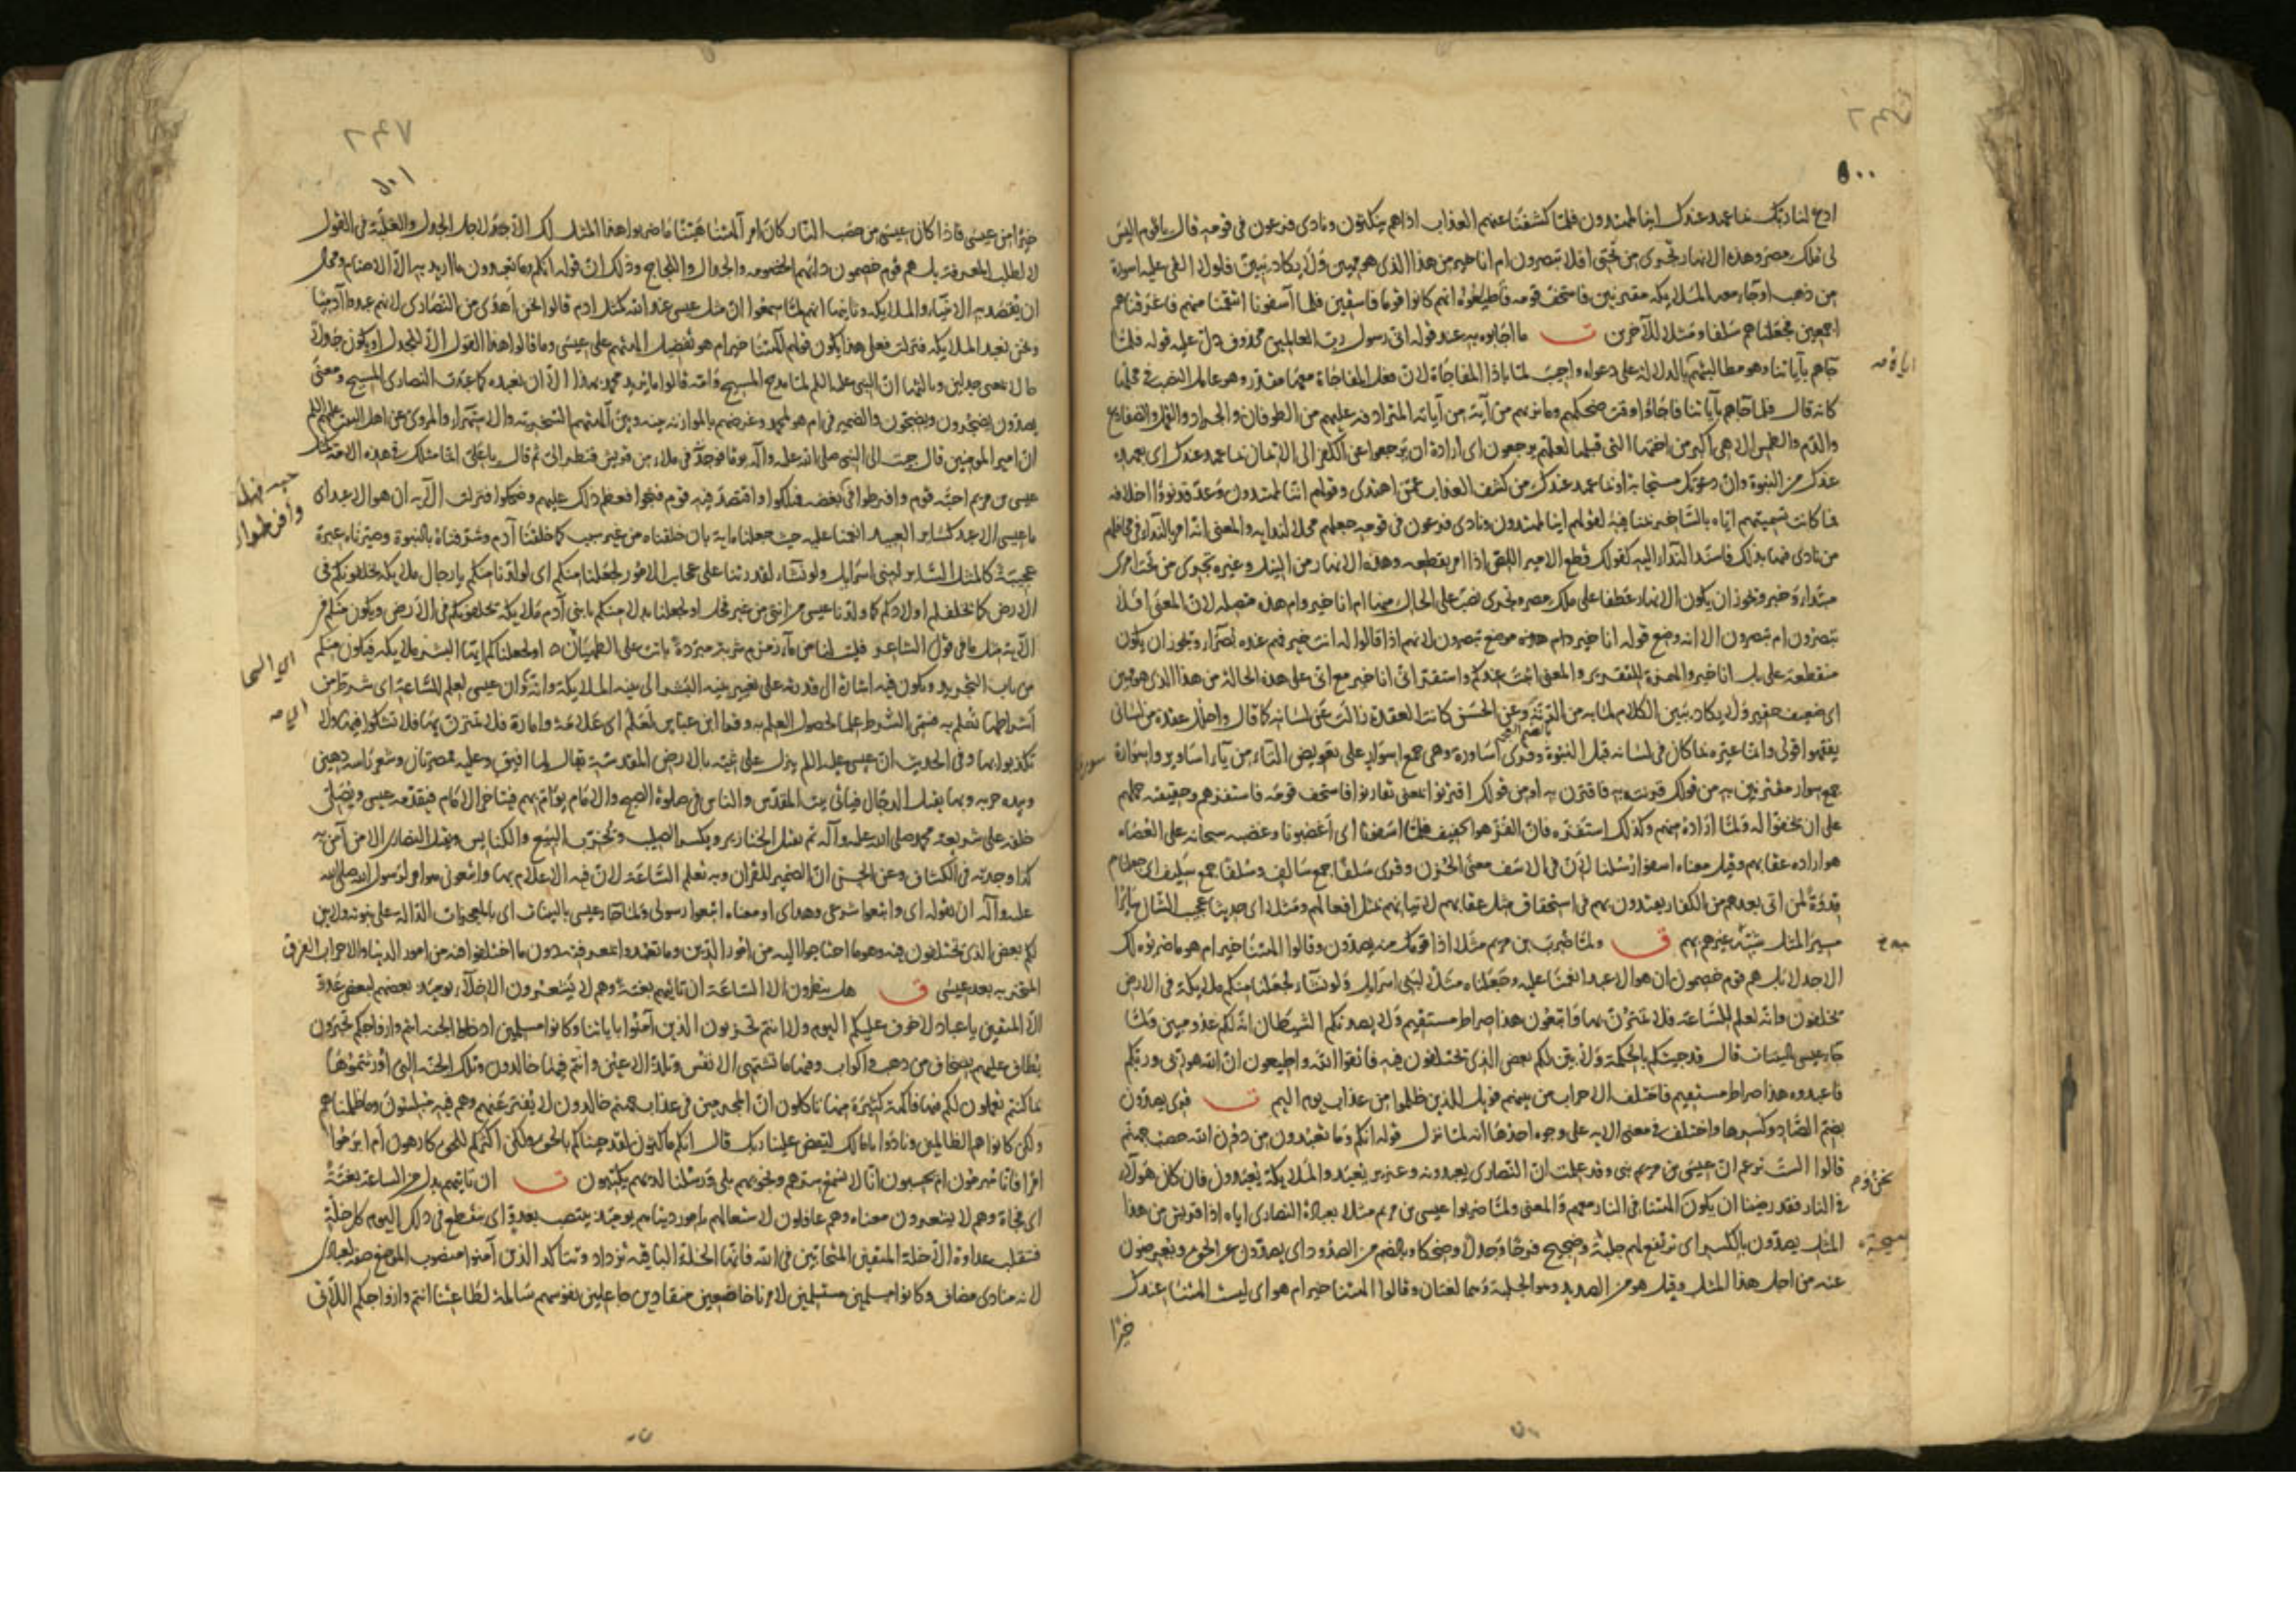 ادع لنا ربك بما عهد عندك اننا لمهتدون فلما كشفنا عنهم العذاب اذا هم ينكثون ونادى فرعون في قومه قال يا قوم اليس
لي ملك مصر وهذه الانهار تجري من تحتي افلا تبصرون ام انا خير من هذا الذي هو مهين ولا يكاد يبين فلولا القي عليه اسورة
من ذهب او جاء معه الملايكه مقترنين فاستخف قومه فاطاعوه انهم كانوا قوما فاسقين فلما آسفونا انتقمنا منهم فاغرقناهم
اجمعين فجعلناهم سلفا ومثلا للآخرين ت ما اجابوه به عند قوله اني رسول رب العالمين محذوف دل عليه قوله فلما
جاهم بآياتنا وهو مطالبتهم بالدلالة على دعواه واجيب لما باذا المفاجاة لان فعل المفاجاة معها مقدر وهو عامل النصب في محلها
كانه قال فلما جاهم بآياتنا فاجاؤا وقت ضحكهم وما نريهم من آية من آياته المترادفه عليهم من الطوفان والجراد والقمل والضفادع
والدم والطمس الا هي اكبر من اختها التي قبلها لعلهم يرجعون اى ارادة ان يرجعوا عن الكفر الى الايمان بما عهد عندك اى بعهده
عندك من النبوة وان دعوتك مستجابة او بما عهد عندك من كشف العذاب عمن اهتدى وقولهم اننا لمهتدون وعد قد نووا اخلافه
فما كانت تسميتهم اياه بالساحر بمنافية لقولهم اننا لمهتدون ونادى فرعون في قومه جعلهم محلا لندايه والمعنى انه امر بالنداء في مجامعهم
من نادى فيها بذلك فاسند النداء اليه كقولك قطع الامير اللص اذا امر بقطعه وهذه الانهار من النيل وغيره تجري من تحت امري
مبتداء وخبر ويجوز ان يكون الانهار عطفا على ملك مصر وتجري نصب على الحال منها ام انا خير وام هذه متصله لان المعنى افلا
تبصرون ام تبصرون الا انه وضع قوله انا خير موضع تبصرون لانهم اذا قالوا له انت خير فهم عنده بصراء ويجوز ان يكون
منقطعة على بل انا خير والهمزة للتقرير والمعنى اثبت عندكم واستقر انى انا خير مع انى على هذه الحالة من هذا الذي هو مهين
اى ضعيف حقير ولا يكاد يبين الكلام لما به من الرتة وعن الحسن كانت العقدة زالت عن لسانه كما قال واحلل عقدة من لساني
يفقهوا قولي وانما عيره بما كان في لسانه قبل النبوة وقرى اساورة وهي جمع اسوار على تعويض التاء من ياء اساوير واسورة
جمع سوار مقترنين به من قولك قرنته به فاقترن به او من قولك اقترنوا بمعنى تقارنوا فاستخف قومه فاستفزهم وحقيقته حملهم
على ان يخفوا له ولما اراده منهم وكذلك استفزه فان الفز هو الخفيف فلما آسفونا اى اغضبونا وغضبه سبحانه على العصاه
هو اراده عقابهم وقيل معناه اسفوا رسلنا لان في الاسف معنى الحزن وقرى سلفا جمع سالف وسلفا جمع سليف اى جعلناهم
قدوة لمن اتى بعدهم من الكفار يقتدون بهم في استحقاق مثل عقابهم لاتيانهم بمثل افعالهم ومثلا اى حديثا عجيب الشان سائرا
مسير المثل يشبه غيرهم بهم ق ولما ضرب بن مريم مثلا اذا قومك منه يصدون وقالوا الهتنا خير ام هو ما ضربوه لك
الا جدلا بل هم قوم خصمون ان هو الا عبد انعمنا عليه وجعلناه مثلا لبني اسرايل ولو نشاء لجعلنا منكم ملايكة في الارض
يخلفون وانه لعلم للساعة فلا تمترن بها واتبعون هذا صراط مستقيم ولا يصدنكم الشيطان انه لكم عدو مبين ولما
جاء عيسى بالبينات قال قد جئتكم بالحكمة ولابين لكم بعض الذي تختلفون فيه فاتقوا الله واطيعون ان الله هو ربي وربكم
فاعبدوه هذا صراط مستقيم فاختلف الاحزاب من بينهم فويل للذين ظلموا من عذاب يوم اليم ت قرى يصدون
بضم الصاد وكسرها واختلف في معنى الايه على وجوه احدها انه لما نزل قوله انكم وما تعبدون من دون الله حصب جهنم
قالوا الست تزعم ان عيسى بن مريم نبي وقد علمت ان النصارى يعبدونه وعزير يعبد والملايكة يعبدون فان كان هؤلاء
في النار فقد رضينا ان يكون الهتنا في النار معهم والمعنى ولما ضربوا عيسى بن مريم مثلا بعبادة النصارى اياه اذا قريش من هذا
المثل يصدون بالكسر اى ترتفع لهم جلبة وضجيج فرحا وجدلا وضحكا وبالضم من الصدود اى يصدون عن الحق ويعرضون
عنه من اجل هذا المثل وقيل هو من الصديد وهو الجلبة وهما لغتان وقالوا الهتنا خير ام هو اى ليست الهتنا عندك
خيرا
خيرا من عيسى فاذا كان عيسى من حصب النار كان امر آلهتنا هينا ما ضربوا هذا المثل لك الا جدلا لاجل الجدل والغلبة في القول
لا لطلب المعرفة بل هم قوم خصمون دابهم الخصومه والجدال واللجاج وذلك ان قوله انكم وما تعبدون ما اريد به الا الاصنام ومحال
ان يقصد به الانبياء والملايكه وثانيها انهم لما سمعوا ان مثل عيسى عند الله كمثل ادم قالوا نحن اهدى من النصارى لانهم عبدوا آدميا
ونحن نعبد الملايكه فنزلت فعلى هذا يكون قولهم آلهتنا خير ام هو تفضيل لالهتهم على عيسى وما قالوا هذا القول الا للجدل او يكون جدلا
حالا بمعنى جدلين وثالثها ان النبي عليه السلم لما مدح المسيح وامه قالوا ما يريد محمد بهذا الا ان نعبده كما عبدت النصارى المسيح ومعنى
يصدون يضجرون ويضجون والضمير في ام هو لمحمد وغرضهم بالموازنه بينه وبين آلهتهم السخرية والاستهزاء والمروى عن اهل البيت عليهم السلم
ان امير المومنين قال جيت الى النبي صلى الله عليه وآله يوما فوجدته في ملاء من قريش فنظر الى ثم قال يا علي انما مثلك في هذه الامة مثل
عيسى بن مريم احبه قوم وافرطوا في بغضه فهلكوا واقتصد فيه قوم فنجوا فعظم ذلك عليهم وضحكوا فنزلت الآيه ان هو الا عبد اى
ما عيسى الا عبد كساير العبيد انعمنا عليه حيث جعلناه آية بان خلقناه من غير سبب كما خلقنا آدم وشرفناه بالنبوة وصيرناه عبرة
عجيبة كالمثل الساير لبني اسرايل ولو نشاء لقدرتنا على عجايب الامور لجعلنا منكم اى لولدنا منكم يا رجال ملايكه يخلفونكم في
الارض كما يخلفكم اولادكم كما ولدنا عيسى من انثى من غير فحل او لجعلنا بدلا منكم يا بني آدم ملايكه تخلفونكم في الارض ويكون منكم في
من باب التجريد ويكون فيه اشارة الى قدرته على تغيير بنيه البشر الى بنيه الملايكة وانه وان عيسى لعلم للساعة اى شرط من
اشراطها تعلم به فسمى الشرط علما لحصول العلم به وقرا ابن عباس لعلم اى علامة وامارة فلا تمترن بها فلا تشكوا فيها ولا
تكذبوا بها وفي الحديث ان عيسى عليه السلم ينزل على ثنية بالارض المقدسة يقال لها افيق وعليه ممصرتان وشعر راسه دهين
وبيده حربه وبها يقتل الدجال فياتي بيت المقدس والناس في صلوة الصبح والامام يؤم بهم فيتاخر الامام فيقدمه عيسى ويصلى
خلفه على شريعه محمد صلى الله عليه وآله ثم يقتل الخنازير ويكسر الصليب ويخرب البيع والكنايس ويقتل النصارى الا من آمن به
كذا وجدته في الكشاف وعن الحسن ان الضمير للقرآن وبه تعلم الساعة لان فيه الاعلام بها واتبعوني هو امر لرسول الله صلى الله
عليه وآله ان يقوله اى واتبعوا شرعي وهداى او معناه اتبعوا رسولي ولما جاء عيسى بالبينات اى بالمعجزات الدالة على نبوته ولابين
لكم بعض الذي تختلفون فيه وهو ما احتاجوا اليه من امور الدين وما تعبدوا بمعرفته دون ما اختلفوا فيه من امور الدنيا والاحزاب الفرق
المتحزبه بعد عيسى ق هل ينظرون الا الساعة ان تاتيهم بغتة وهم لا يشعرون الاخلاء يومئذ بعضهم لبعض عدو
الا المتقين يا عباد لا خوف عليكم اليوم ولا انتم تحزنون الذين آمنوا باياتنا وكانوا مسلمين ادخلوا الجنه انتم وازواجكم تحبرون
يطاف عليهم بصحاف من ذهب واكواب وفيها ما تشتهي الانفس وتلذ الاعين وانتم فيها خالدون وتلك الجنه التي اورثتموها
بما كنتم تعملون لكم فيها فاكهة كثيرة منها تاكلون ان المجرمين في عذاب جهنم خالدون لا يفتر عنهم وهم فيه مبلسون وما ظلمناهم
ولكن كانوا هم الظالمين ونادوا يا مالك ليقض علينا ربك قال انكم ماكثون لقد جئناكم بالحق ولكن اكثركم للحق كارهون ام ابرموا
امرا فانا مبرمون ام يحسبون انا لا نسمع سرهم ونجويهم بلى ورسلنا لديهم يكتبون ت ان تاتيهم بدل من الساعة بغتة
اى فجاة وهم لا يشعرون معناه وهم غافلون لاشتغالهم بامور دنياهم يومئذ ينتصب بعدو اى ينقطع في ذلك اليوم كل خلة
فتنقلب عداوة الا خلة المتقين المتحابين في الله فانها الخلة الباقيه تزداد وتتاكد الذين آمنوا منصوب الموضع صفه لعباد
لانه منادى مضاف وكانوا مسلمين مستسلمين لامرنا خاضعين منقادين جاعلين نفوسهم سالمة لطاعتنا انتم وازواجكم اللاتي